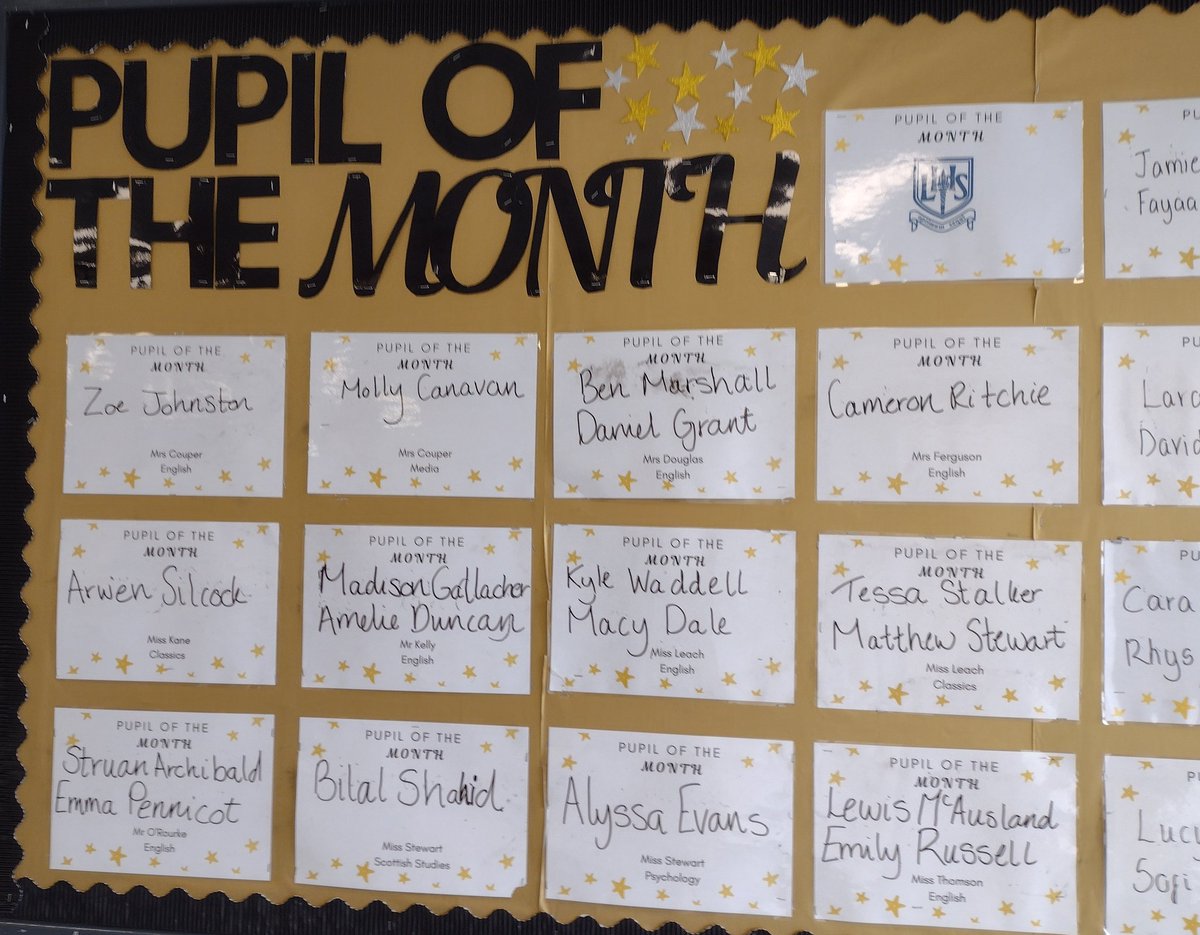 PUPIL OF
THE MONTH
PUPIL OF THE
MONTH
LHS
Jamie
PUPIL OF THE
MONTH
Zoe Johnston
Mrs Couper
English
PUPIL OF THE
MONTH
Molly Canavan
Mrs Couper
Media
PUPIL OF THE
MONTH
Ben Marshall
Daniel Grant
Mrs Douglas
English
PUPIL OF THE
MONTH
Cameron Ritchie
Mrs Ferguson
English
PU
David
PUPIL OF THE
MONTH
Arwen Silcock
Miss Kane
Classics
PUPIL OF THE
MONTH
Madison Gallacher
Amelie Duncan
Mr Kelly
English
PUPIL OF THE
MONTH
Kyle Waddell
Macy Dale
Miss Leach
English
PUPIL OF THE
MONTH
Tessa Stalker
Matthew Stewart
Miss Leach
Classics
PU
Cara
Rhys
PUPIL OF THE
MONTH
Struan Archibald
Emma Pennicot
Mr O'Rourke
English
PUPIL OF THE
MONTH
Bilal Shahid
Miss Stewart
Scottish Studies
PUPIL OF THE
MONTH
Alyssa Evans
Miss Stewart
Psychology
PUPIL OF THE
MONTH
Lewis McAusland
Emily Russell
Miss Thomson
English